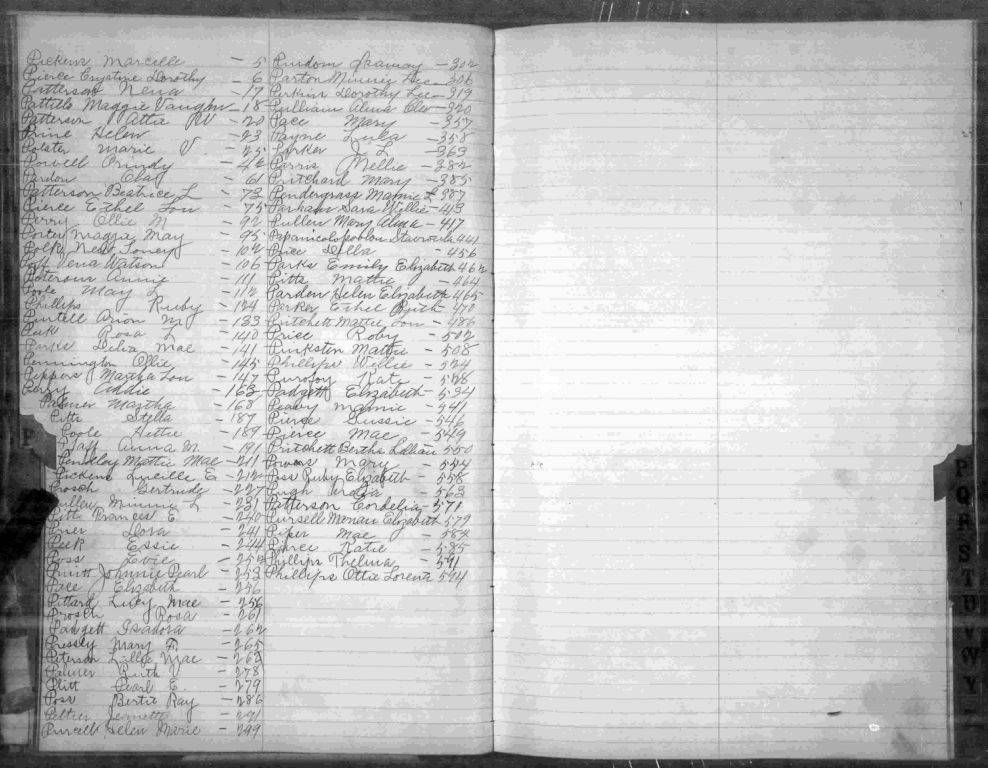 Pickens Marcelle - 5
Pierce Crystine Dorothy - 6
Patterson Nena - 17
Pattillo Maggie Vaughn - 18
Patterson Attie - 20
Prine Helen - 23
Marie V - 25
Powell Prindy - 46
Pardon Clay - 61
Patterson Beatrice L - 73
Pierce Ethel Lou - 75
Perry Ollie M - 92
Maggie May - 95
- 104
Vena Watson - 106
- 111
Poole May L - 112
Phillips Ruby - 124
Purtell M - 133
Peek Rosa L - 140
Delia Mae - 141
Pennington Ollie - 145
Peppers Martha Lou - 147
Perry Addie - 163
Palmer Martha - 168
Pitts Stella - 187
Poole Hettie - 189
Anna M - 191
Pendley Mattie Mae - 211
Pickens Lucille E - 212
Prosch Gertrude - 227
Minnie L - 231
Pitts Frances E. - 240
Dora - 241
Peek Essie - 244
Poss Evie - 252
Pruitt Johnnie Pearl - 253
Pace Elizabeth - 256
Pittard Lucy Mae - 256
Prosch Rosa - 261
Padgett Isadora - 262
Pressly Mary F. - 265
Peterson Lillie Mae - 268
Palmer Ruth V - 278
Plitt Pearl E. - 279
Poss Bertie Ray - 286
Jennette - 291
Purcell Helen Marie - 299
Purdom - 302
Parton Minnie Lee - 306
Perkins Dorothy Lee - 319
Pulliam Alma - 320
Pace Mary - 357
Payne Lula - 358
Parker J L - 363
Parris Nellie - 382
Pritchard Mary - 385
Pendergrass Mamie L 387
Parham Sara Willie - 413
Pullen Mary Alma - 417
441
Price Della - 456
Parks Emily Elizabeth 462
Pitts Mattie - 464
Parden Helen Elizabeth 465
Parker Ethel Ruth - 470
Pritchett Mattie Lou - 486
Price Roby - 502
Pinkston Mattie - 508
Phillips Willie - 524
Purofoy Kate - 528
Padgett Elizabeth - 534
Peavy Mamie - 541
Pierce Sussie - 546
Pierce Mae - 549
Pritchett Bertha Lillian 550
Mary - 554
Poss Ruby Elizabeth - 558
Pugh - 563
Patterson Cordelia - 571
Pursell Elizabeth 579
Piper Mae - 584
Katie - 585
Phillips Thelma - 591
Phillips Ottie Lorena 594
P
P
Q
R
S
T
U
V
W
Y